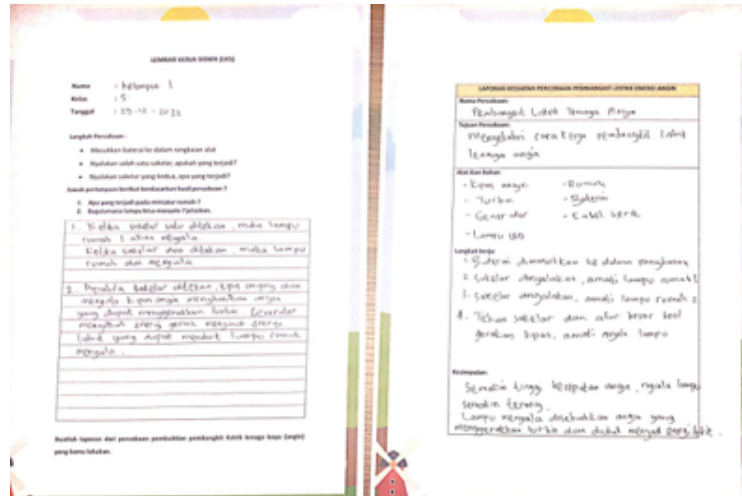 LEMBAR KERJA SISWA (LKS)
Nama : kelompok 1
Kelas : 5
Tanggal
Langkah Percobaan :
• Masukkan baterai ke dalam rangkaian alat
• Nyalakan salah satu sakelar, apakah yang terjadi?
• Nyalakan sakelar yang kedua, apa yang terjadi?
Jawab pertanyaan berikut berdasarkan hasil percobaan !
1. Apa yang terjadi pada miniatur rumah?
2. Bagaimana lampu bisa menyala? jelaskan.
1. Ketika sakelar satu ditekan, maka lampu
rumah 1 akan menyala.
Ketika sakelar dua ditekan, maka lampu
rumah dua menyala.
2. Apabila sakelar ditekan, kipas angin akan
menyala. kipas angin menghasilkan angin
yang dapat menggerakkan turbin. Generator
mengubah energi gerak menjadi energi
listrik yang dapat membuat lampu rumah
menyala.
Buatlah laporan dari percobaan pembuktian pembangkit listrik tenaga bayu (angin)
yang kamu lakukan.
LAPORAN KEGIATAN PERCOBAAN PEMBANGKIT LISTRIK ENERGI ANGIN
Nama Percobaan:
Pembangkit Listrik Tenaga Angin
Tujuan Percobaan:
Mengetahui cara kerja pembangkit listrik
tenaga angin
Alat dan Bahan
- Kipas angin - Rumah
- Turbin - Baterai
- Generator - Kabel listrik
- Lampu LED
Langkah kerja:
1. Baterai dimasukkan ke dalam rangkaian
2. sakelar dinyalakan, amati lampu rumah 1
3. sakelar dinyalakan, amati lampu rumah 2
4. Tekan sakelar dan atur besar kecil
gerakan kipas, amati nyala lampu
Kesimpulan:
Semakin tinggi kecepatan angin, nyala lampu
semakin terang.
Lampu menyala disebabkan angin yang
menggerakkan turbin dan dapat menjadi energi listrik.